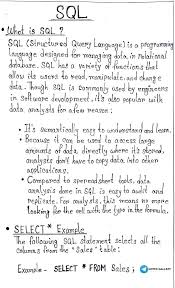 SQL
• What is SQL ?
SQL (Structured Query Language) is a programing
language designed for managing data in relational
database. SQL has a variety of functions that
allow its users to read, manipulate, and change
data. Though SQL is commonly used by engineers
in software development, it's also popular with
data analysts for a few reason:
• It's semantically easy to understand and learn.
• Because it can be used to access large
amounts of data, directly where it's stored,
analysts don't have to copy data into other
applications.
• Compared to spreadsheet tools, data
analysis done in SQL is easy to audit and
replicate. For analysts, this means no more
looking for the cell with the typo in the formula.
• SELECT * Example
The following SQL statement selects all the
columns from the "Sales" table:
Example - SELECT * FROM Sales;